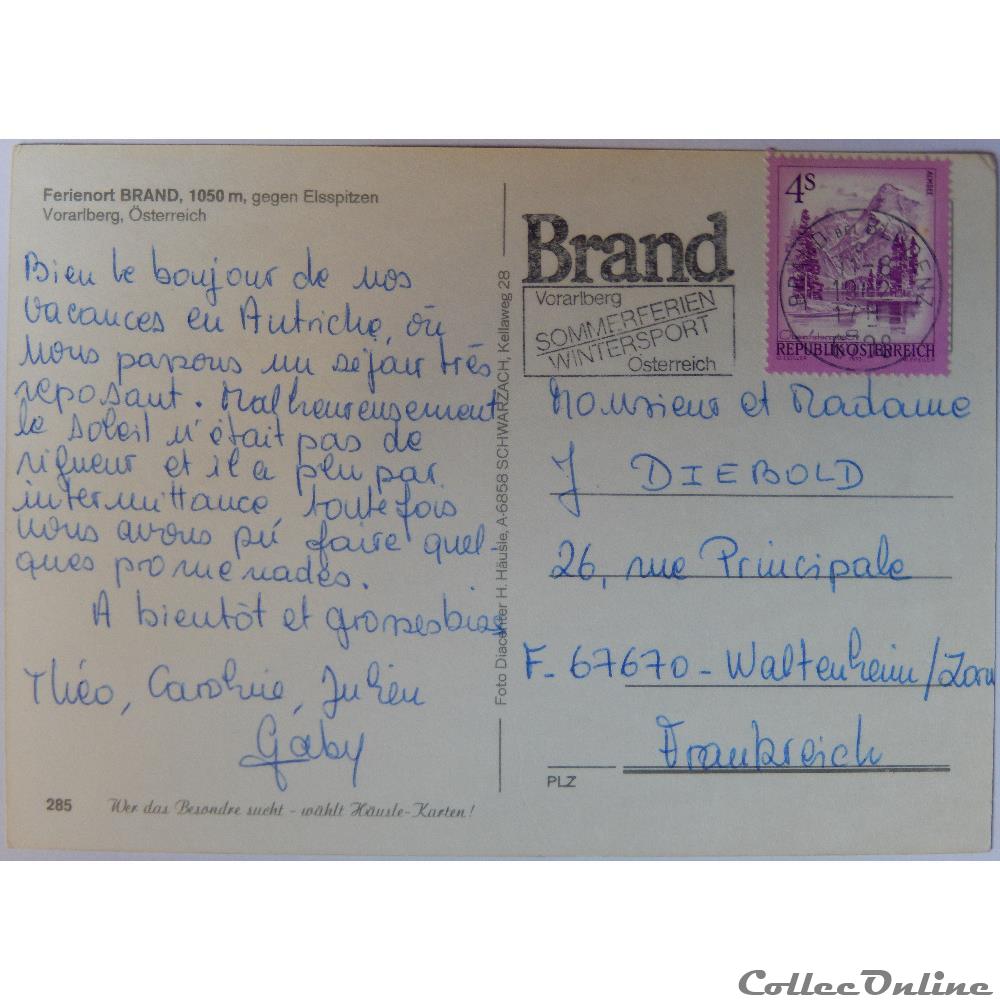 Ferienort BRAND, 1050 m, gegen Elsspitzen
Vorarlberg, Österreich
Bien le bonjour de nos
vacances en Autriche, où
nous passons un séjour très
reposant. Malheureusement
le soleil n'était pas de
rigueur et il a plu par
intermittance, toutefois
nous avons pû faire quel-
ques promenades.
A bientôt et grosses bises
Théo, Caroline, Julien
Gaby
285 Wer das Besondre sucht - wählt Häusle-Karten!
Foto Diacenter H. Häusle, A-6858 SCHWARZACH, Kellaweg 28
Brand
Vorarlberg
SOMMERFERIEN
WINTERSPORT
Österreich
4S
ALMSEE
REPUBLIK ÖSTERREICH
BRAND BEI BLUDENZ
Monsieur et Madame
J DIEBOLD
26, rue Principale
F-67670-Waltenheim/Zorn
Frankreich
PLZ
CollecOnline